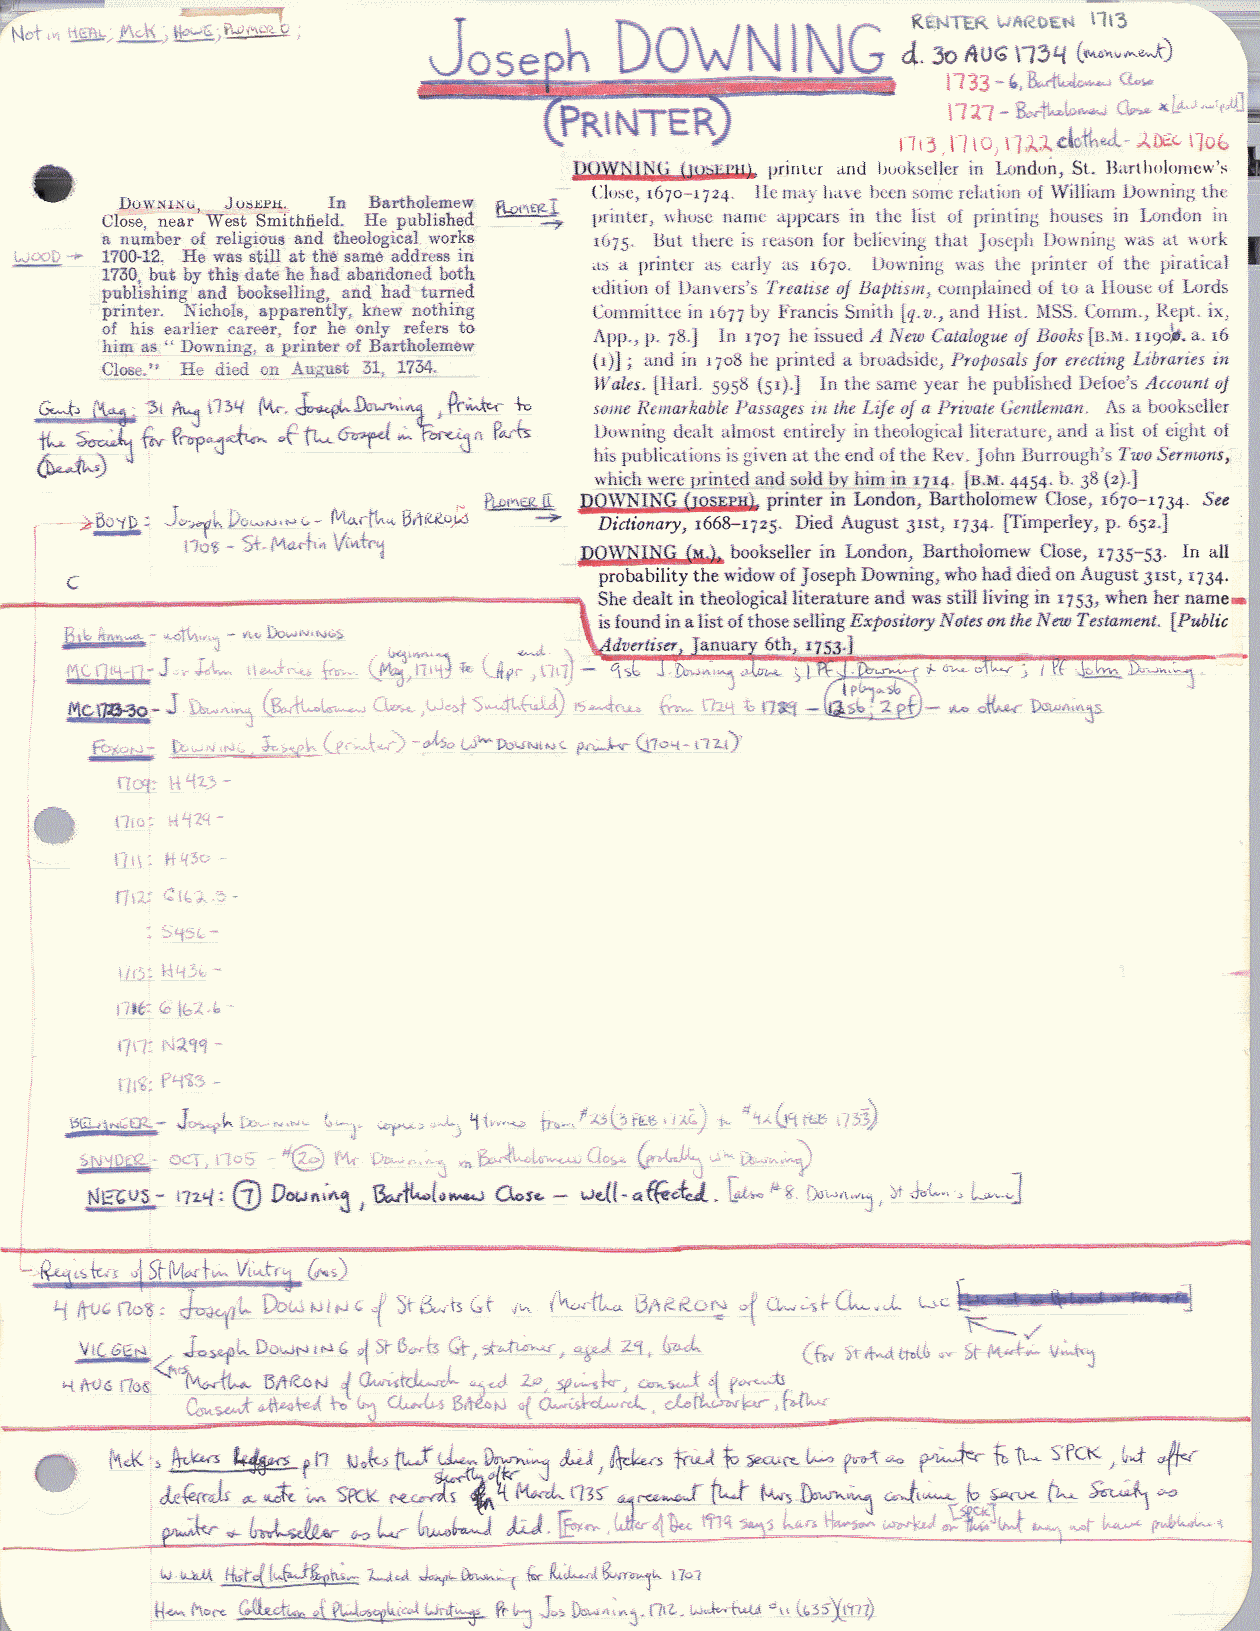 Not in HEAL; McK; HOWE; PLOMER O;
Joseph DOWNING
(PRINTER)
RENTER WARDEN 1713
d. 30 AUG 1734 (monument)
1733 - 6, Bartholomew Close
1727 - Bartholomew Close x
1713, 1710, 1722 clothed - 2 DEC 1706
WOOD →
DOWNING, JOSEPH. In Bartholemew
Close, near West Smithfield. He published
a number of religious and theological works
1700-12. He was still at the same address in
1730, but by this date he had abandoned both
publishing and bookselling, and had turned
printer. Nichols, apparently, knew nothing
of his earlier career, for he only refers to
him as “ Downing, a printer of Bartholemew
Close.” He died on August 31, 1734.
PLOMER I →
DOWNING (JOSEPH), printer and bookseller in London, St. Bartholomew's
Close, 1670–1724. He may have been some relation of William Downing the
printer, whose name appears in the list of printing houses in London in
1675. But there is reason for believing that Joseph Downing was at work
as a printer as early as 1670. Downing was the printer of the piratical
edition of Danvers's Treatise of Baptism, complained of to a House of Lords
Committee in 1677 by Francis Smith [q.v., and Hist. MSS. Comm., Rept. ix,
App., p. 78.] In 1707 he issued A New Catalogue of Books [B.M. 11906. a. 16
(1)] ; and in 1708 he printed a broadside, Proposals for erecting Libraries in
Wales. [Harl. 5958 (51).] In the same year he published Defoe's Account of
some Remarkable Passages in the Life of a Private Gentleman. As a bookseller
Downing dealt almost entirely in theological literature, and a list of eight of
his publications is given at the end of the Rev. John Burrough's Two Sermons,
which were printed and sold by him in 1714. [B.M. 4454. b. 38 (2).]
Gents Mag: 31 Aug 1734 Mr. Joseph Downing, Printer to
the Society for Propagation of the Gospel in Foreign Parts
(Deaths)
PLOMER II →
DOWNING (JOSEPH), printer in London, Bartholomew Close, 1670–1734. See
Dictionary, 1668–1725. Died August 31st, 1734. [Timperley, p. 652.]
DOWNING (M.), bookseller in London, Bartholomew Close, 1735–53. In all
probability the widow of Joseph Downing, who had died on August 31st, 1734.
She dealt in theological literature and was still living in 1753, when her name
is found in a list of those selling Expository Notes on the New Testament. [Public
Advertiser, January 6th, 1753.]
BOYD: Joseph DOWNING - Martha BARROW
1708 - St. Martin Vintry
C
Bib Annua - nothing - no DOWNINGS
MC 1714-17 - J or John 11 entries from (beginning May, 1714) to (end Apr, 1717) - 9 sb J. Downing alone; 1 Pf J. Downing & one other; 1 Pf John Downing.
MC 1723-30 - J. Downing (Bartholomew Close, West Smithfield) 15 entries from 1724 to 1729 - (12 sb; 2 pf) - no other Downings
1 pby a sb
FOXON - DOWNING, Joseph (printer) - also Wm DOWNING printer (1704-1721)
1709: H423 -
1710: H429 -
1711: H430 -
1712: G162.3 -
: S456 -
1713: H436 -
1716: G162.6 -
1717: N299 -
1718: P483 -
BELANGER - Joseph DOWNING buys copies only 4 times from #23 (3 FEB 1726) to #42 (19 FEB 1733)
SNYDER - OCT, 1705 - #(20) Mr. Downing in Bartholomew Close (probably Wm Downing)
NEGUS - 1724: (7) Downing, Bartholomew Close - well-affected. [also #8. Downing, St John's Lane]
Registers of St Martin Vintry (ms)
4 AUG 1708: Joseph DOWNING of St Barts Gt m Martha BARRON of Christ Church
VIC GEN Joseph DOWNING of St Barts Gt, stationer, aged 29, bach (for St And Holb or St Martin Vintry
4 AUG 1708 Martha BARON of Christchurch aged 20, spinster, consent of parents
Consent attested to by Charles BARON of Christchurch, clothworker, father
McK's Ackers Ledgers p17 Notes that when Downing died, Ackers tried to secure his post as printer to the SPCK, but after
deferrals a note in SPCK records shortly after 4 March 1735 agreement that Mrs Downing continue to serve the Society as
printer & bookseller as her husband did. [Foxon, letter of Dec 1979 says Lars Hanson worked on this [SPCK] but may not have published
W Wall Hist of Infant Baptism 2nd ed Joseph Downing for Richard Burrough 1707
Hen More Collection of Philosophical Writings Pr by Jos Downing. 1712. Waterfield #11 (635)(1977)